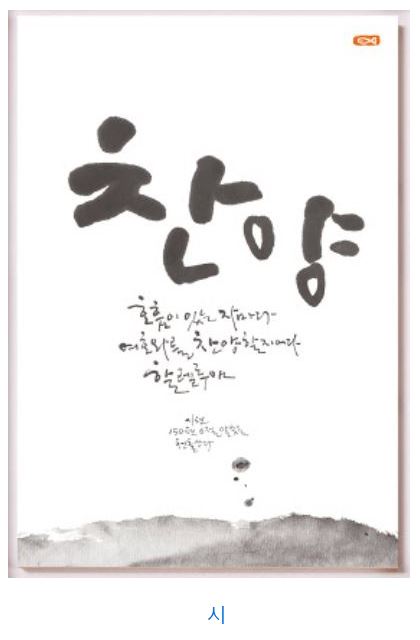 찬양
호흡이 있는 자마다
여호와를 찬양할지어다
할렐루야
시편
150편 6절 말씀을
시